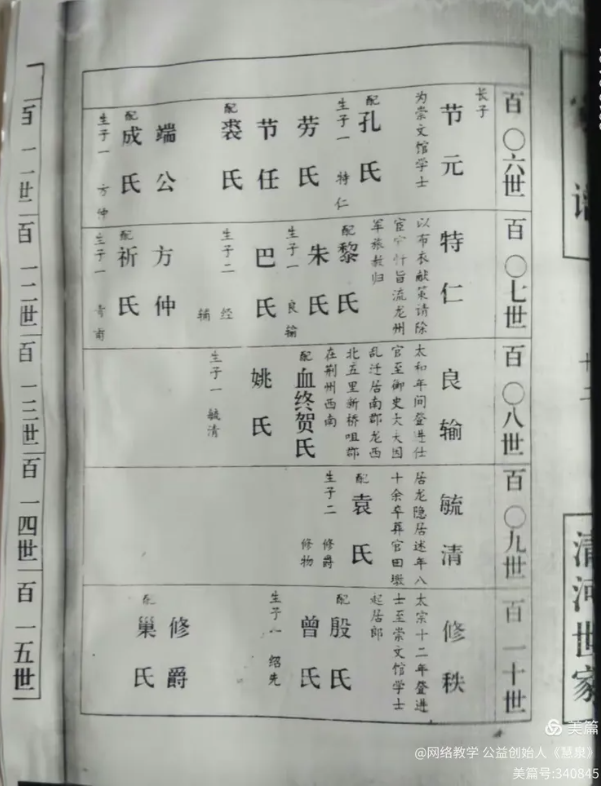 百〇六世
长子
节元
为崇文馆学士
配
孔氏
生子一 特仁
劳氏
节任
配
裘氏
端公
配
成氏
生子一 方仲
百〇七世
特仁
以布衣献策请除
宦官忤旨流龙州
军赦归
配
黎氏
朱氏
生子一 良输
巴氏
生子二 经
辅
方仲
配
祈氏
生子一
百〇八世
良输
太和年间登进仕
官至御史大夫因
乱迁居南郡龙西
北五里新桥咀郡
在荆州西南
配
血终贺氏
姚氏
生子一 毓清
百〇九世
毓清
居龙隐居述年八
十余卒葬官田墩
配
袁氏
生子二 修爵
修物
百一十世
修秩
太宗十二年登进
士至崇文馆学士
起居郎
配
殷氏
曾氏
生子一 绍先
修爵
配
巢氏
百一一世
百一二世
百一三世
百一四世
百一五世
清河世家
美篇
@网络教学 公益创始人《慧泉》
美篇号:340845